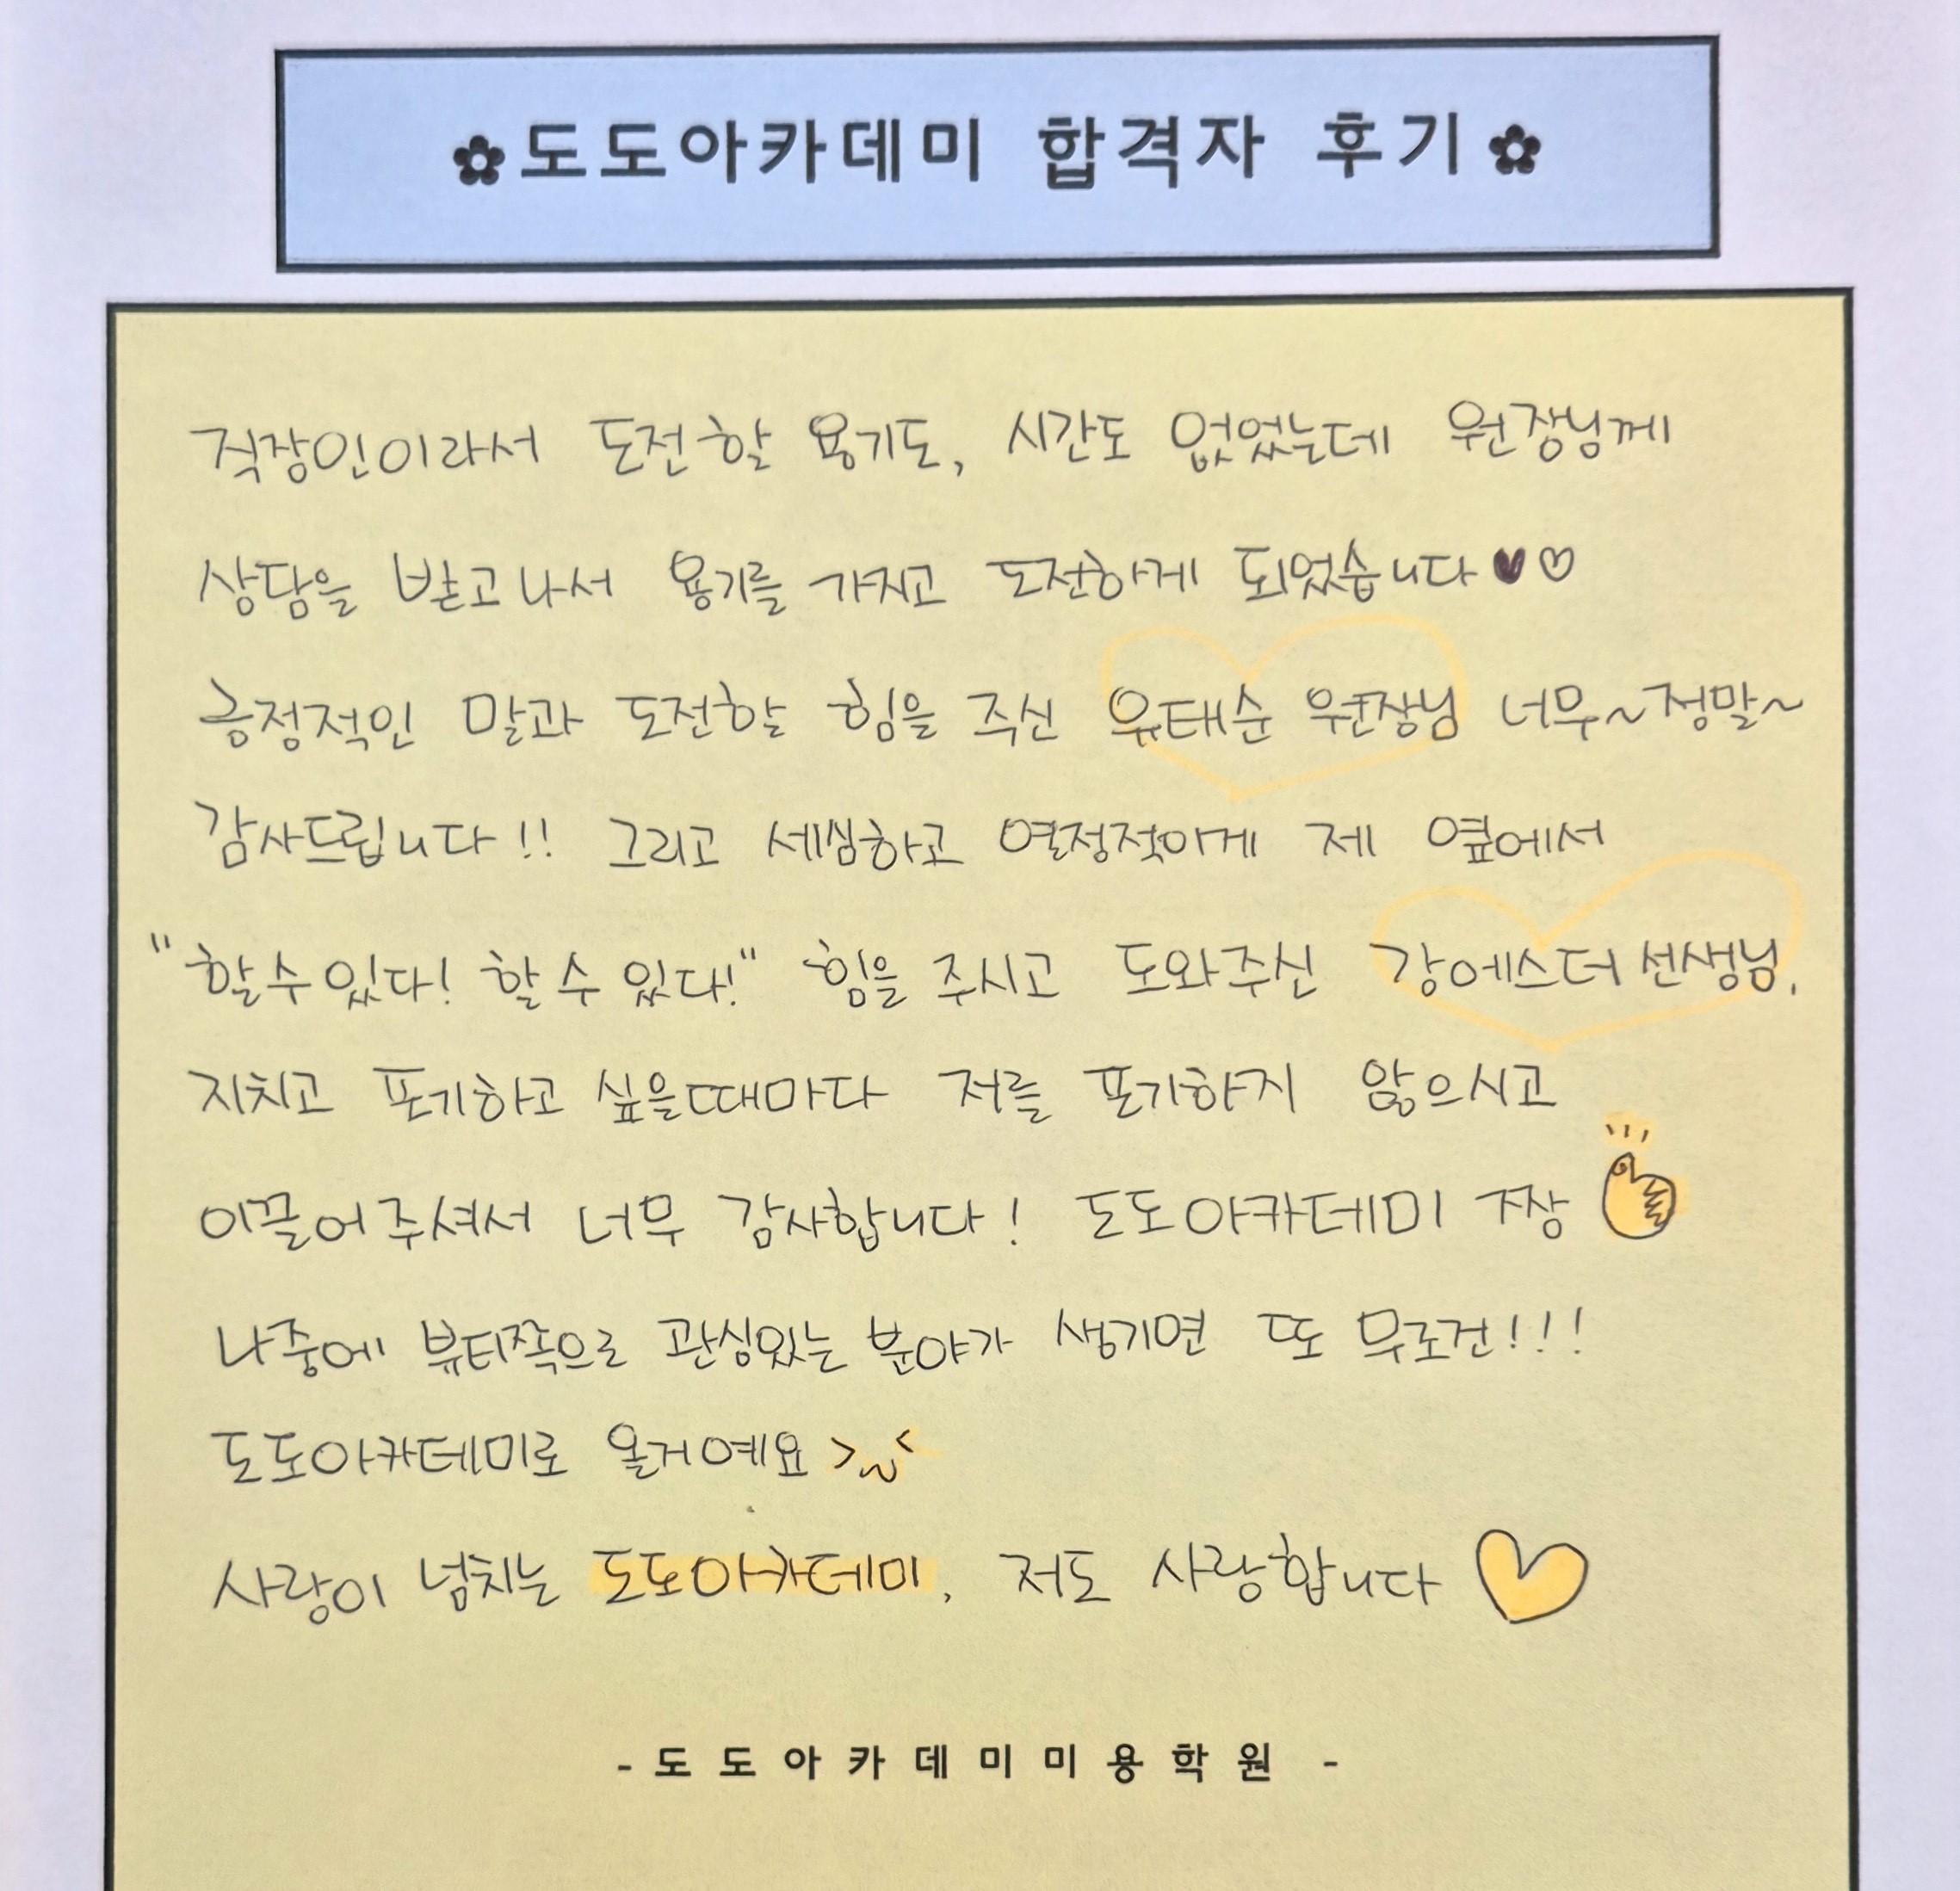 ✿도도아카데미 합격자 후기✿
직장인이라서 도전할 용기도, 시간도 없었는데 원장님께
상담을 받고나서 용기를 가지고 도전하게 되었습니다♥♡
긍정적인 말과 도전할 힘을 주신 유태순 원장님 너무~정말~
감사드립니다!! 그리고 세심하고 열정적이게 제 옆에서
"할수있다! 할수있다!" 힘을 주시고 도와주신 강에스더선생님.
지치고 포기하고 싶을때마다 저를 포기하지 않으시고
이끌어주셔서 너무 감사합니다! 도도아카데미 짱
나중에 뷰티쪽으로 관심있는 분야가 생기면 또 무조건!!!
도도아카데미로 올거예요 >ㅆ<
사랑이 넘치는 도도아카데미, 저도 사랑합니다♡
- 도도아카데미미용학원 -